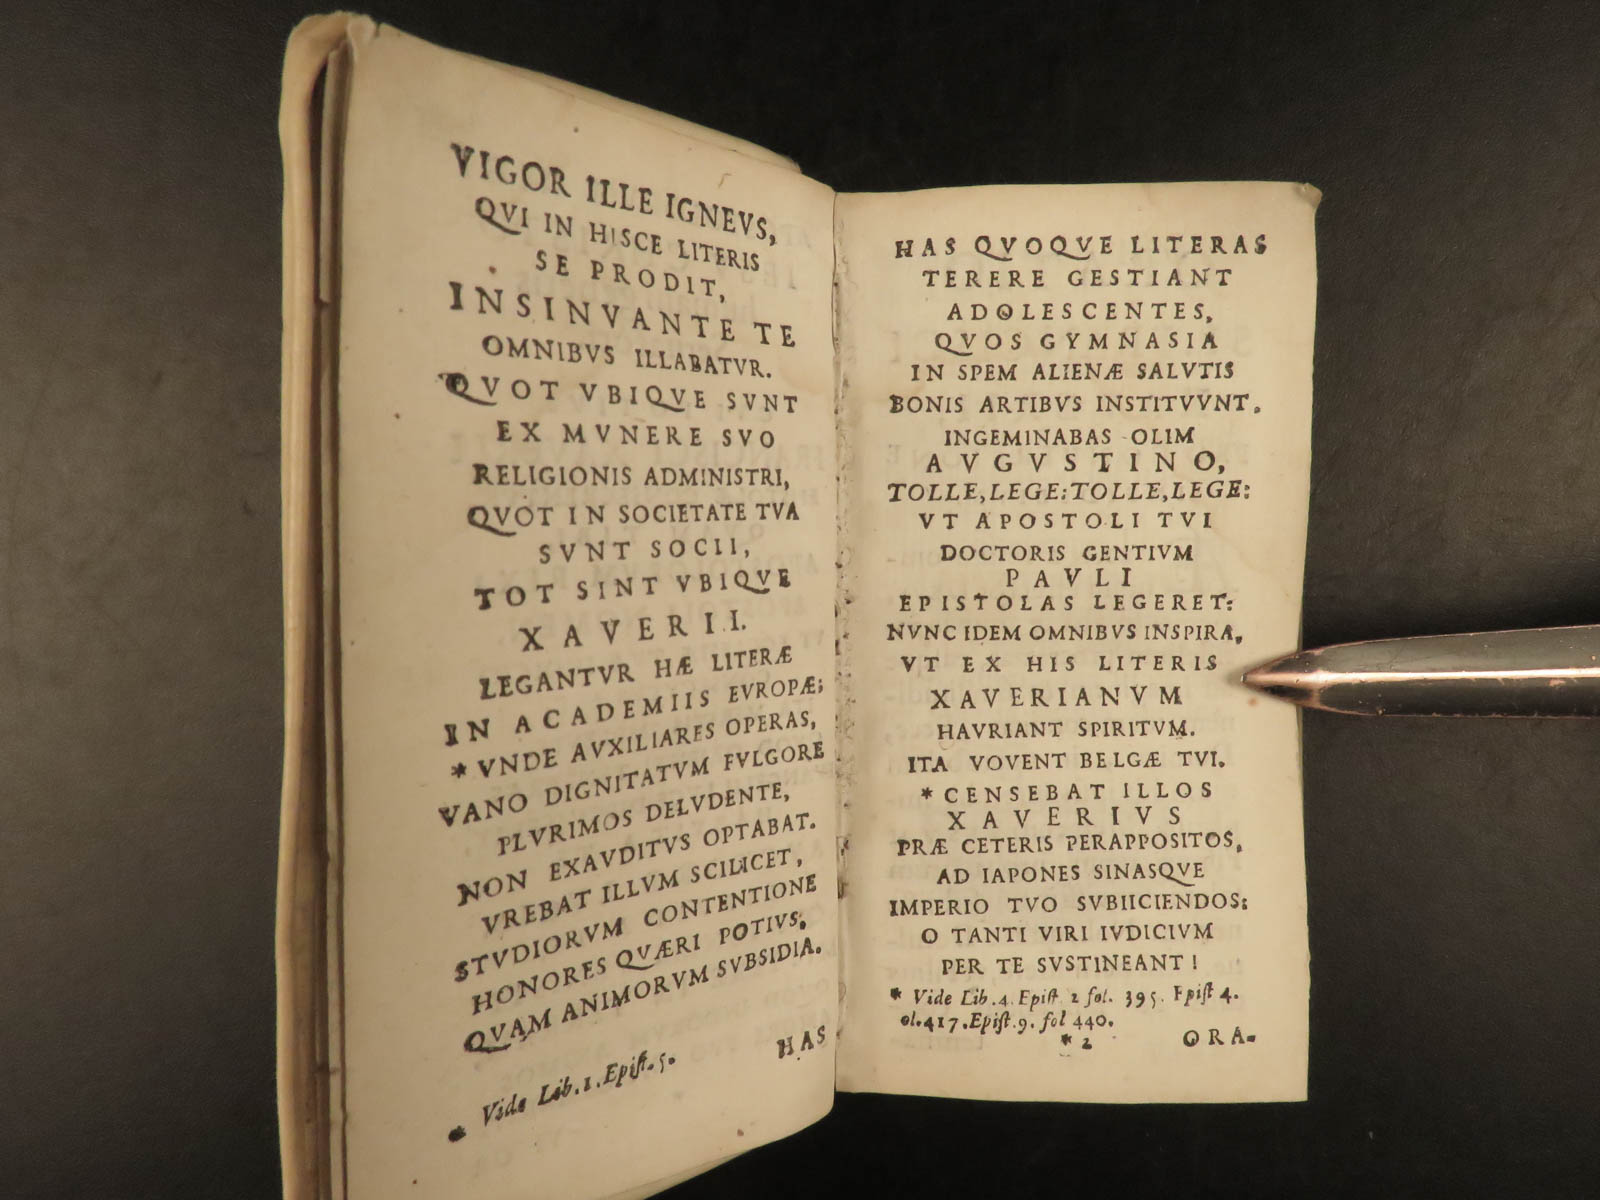 VIGOR ILLE IGNEVS,
QVI IN HISCE LITERIS
SE PRODIT,
INSINVANTE TE
OMNIBVS ILLABATVR.
QVOT VBIQVE SVNT
EX MVNERE SVO
RELIGIONIS ADMINISTRI,
QVOT IN SOCIETATE TVA
SVNT SOCII,
TOT SINT VBIQVE
XAVERII.
LEGANTVR HÆ LITERÆ
IN ACADEMIIS EVROPÆ;
* VNDE AVXILIARES OPERAS,
VANO DIGNITATVM FVLGORE
PLVRIMOS DELVDENTE,
NON EXAVDITVS OPTABAT.
VREBAT ILLVM SCILICET,
STVDIORVM CONTENTIONE
HONORES QVÆRI POTIVS,
QVAM ANIMORVM SVBSIDIA.
* Vide Lib. 1. Epist. 5.
HAS
HAS QVOQVE LITERAS
TERERE GESTIANT
ADOLESCENTES,
QVOS GYMNASIA
IN SPEM ALIENÆ SALVTIS
BONIS ARTIBVS INSTITVVNT.
INGEMINABAS OLIM
AVGVSTINO,
TOLLE, LEGE: TOLLE, LEGE:
VT APOSTOLI TVI
DOCTORIS GENTIVM
PAVLI
EPISTOLAS LEGERET:
NVNC IDEM OMNIBVS INSPIRA,
VT EX HIS LITERIS
XAVERIANVM
HAVRIANT SPIRITVM.
ITA VOVENT BELGÆ TVI.
* CENSEBAT ILLOS
XAVERIVS
PRÆ CETERIS PERAPPOSITOS,
AD IAPONES SINASQVE
IMPERIO TVO SVBIICIENDOS:
O TANTI VIRI IVDICIVM
PER TE SVSTINEANT!
* Vide Lib. 4. Epist 2 fol. 395. Epist 4.
ol. 417. Epist. 9. fol 440.
* 2
ORA-